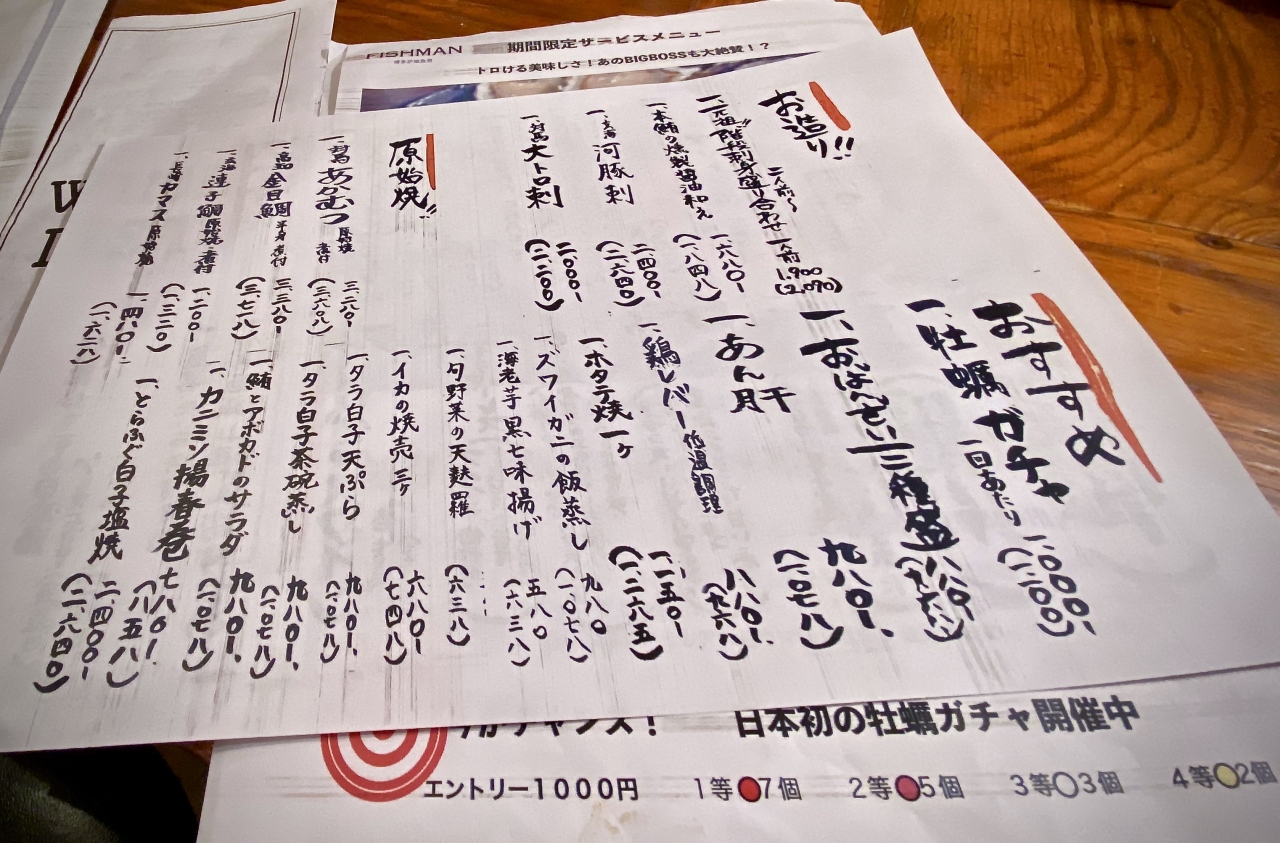 FISHMAN
期間限定サービスメニュー
トロける美味しさ！あのBIGBOSSも大絶賛！？
お造り!!
一、元祖!!階段刺身盛り合わせ 二人前〜 一人前 1,900 (2,090)
一、本鮪の燻製醤油和え 一、六八〇- (一、八四八)
一、玄海 河豚刺 二、四〇〇- (二、六四〇)
一、対馬 大トロ刺 二、〇〇〇- (二、二〇〇)
原始焼!!
一、対馬 あかむつ 原始焼 煮付 三、二八〇- (三、六〇八)
一、高知 金目鯛 半身 煮付 三、三八〇- (三、七一八)
一、玄海 連子鯛 原始焼・煮付 一、二〇〇- (一、三二〇)
一、長崎 カマス 原始焼 一、四八〇- (一、六二八)
おすすめ
一、牡蠣ガチャ 一回あたり 一、〇〇〇- (一、一〇〇)
一、おばんざい三種盛 八八〇- (九六八)
一、あん肝 九八〇- (一、〇七八)
一、鶏レバー 低温調理 八八〇- (九六八)
一、ホタテ焼 一ヶ 一、一五〇- (一、二六五)
一、ズワイガニの飯蒸し 九八〇 (一、〇七八)
一、海老芋黒七味揚げ 五八〇 (六三八)
一、旬野菜の天麩羅 (六三八)
一、イカの焼売 三ヶ 六八〇- (七四八)
一、タラ白子天ぷら 九八〇- (一、〇七八)
一、タラ白子茶碗蒸し 九八〇- (一、〇七八)
一、鮪とアボカドのサラダ 九八〇- (一、〇七八)
一、カニミソ揚春巻 七八〇- (八五八)
一、とらふぐ白子塩焼 二、四〇〇- (二、六四〇)
チャンス！
日本初の牡蠣ガチャ開催中
エントリー１０００円 1等 7個 2等 5個 3等 3個 4等 2個